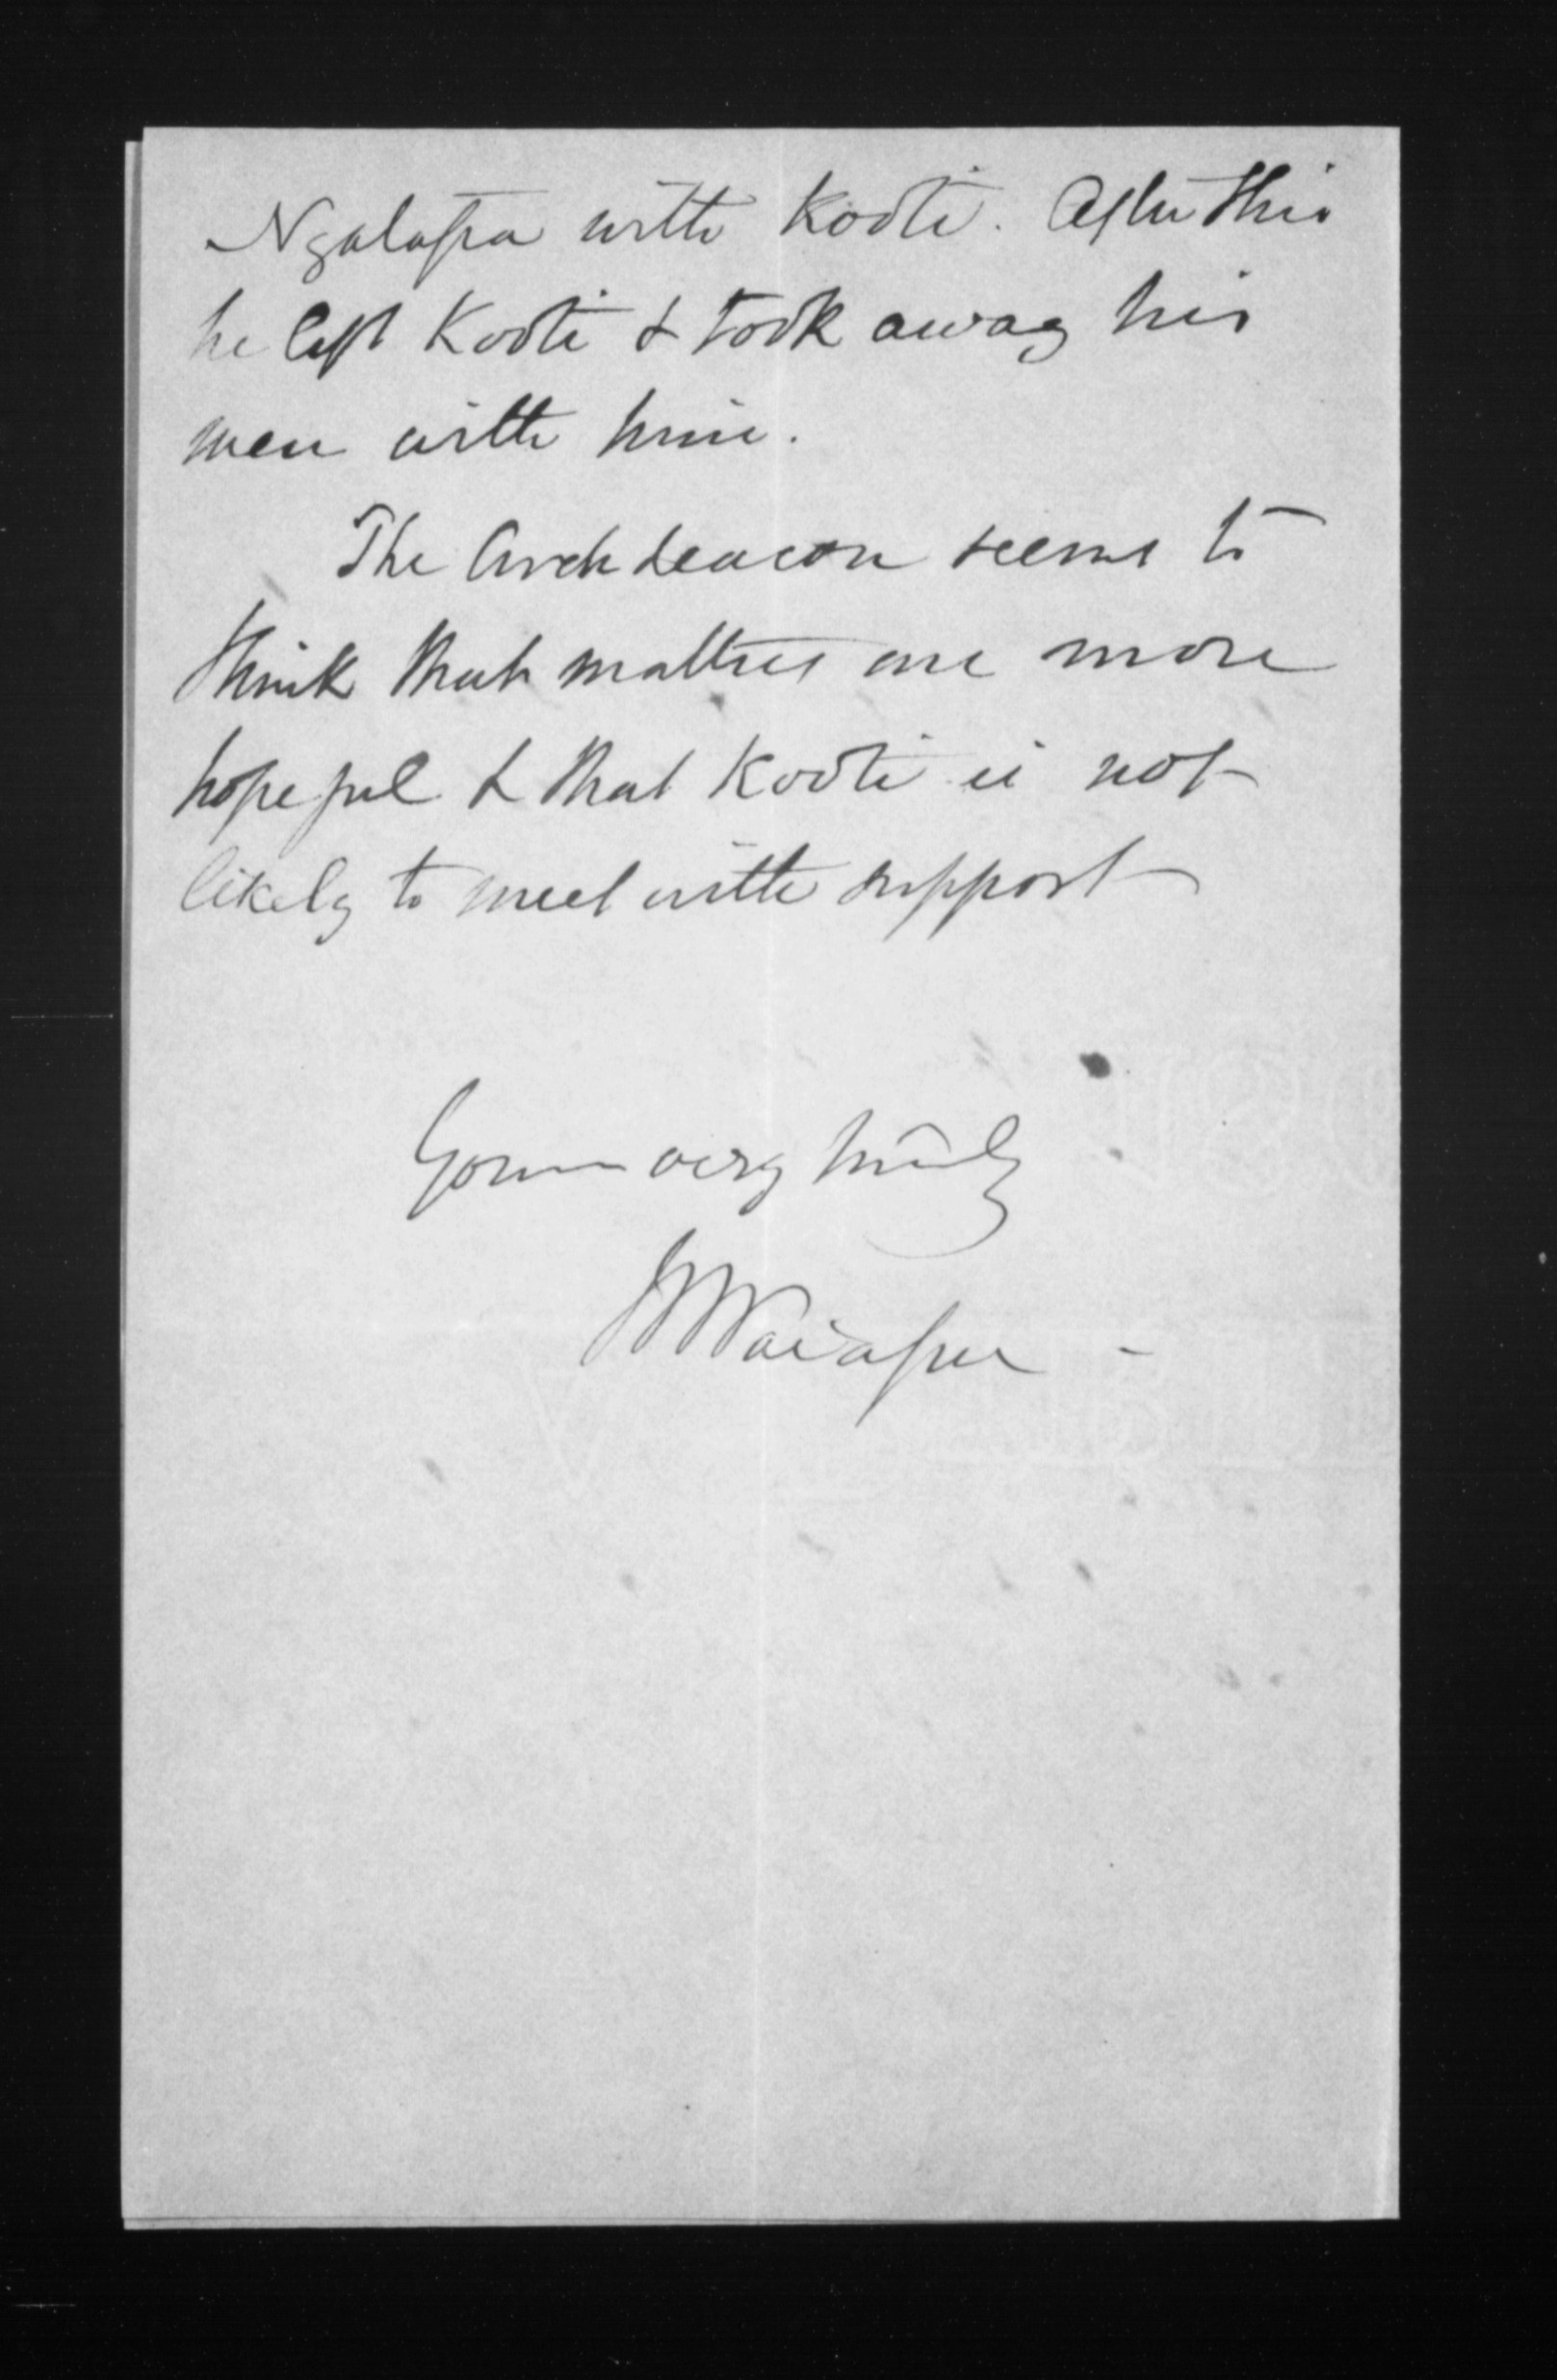 Ngatapa with Kooti. After this
he left Kooti & took away his
men with him.
The Archdeacon seems to
think that matters are more
hopeful & that Kooti is not
likely to meet with support
Yours very truly
W Waiapu